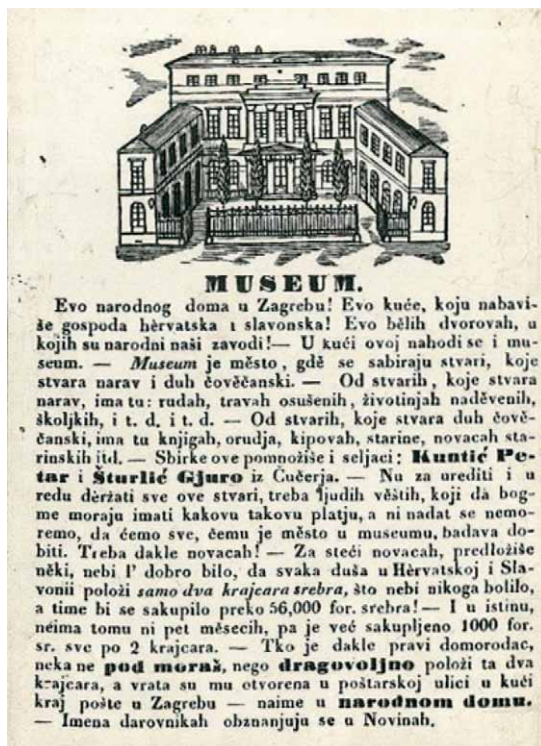 MUSEUM.
Evo narodnog doma u Zagrebu! Evo kuće, koju nabavi-
še gospoda hèrvatska i slavonska! Evo bělih dvorovah, u
kojih su narodni naši zavodi! — U kući ovoj nahodi se i mu-
seum. — Museum je město, gdě se sabiraju stvari, koje
stvara narav i duh čověčanski. — Od stvarih, koje stvara
narav, ima tu: rudah, travah osušenih, životinjah naděvenih,
školjkih, i t. d. i t. d. — Od stvarih, koje stvara duh čově-
čanski, ima tu knjigah, orudja, kipovah, starine, novacah sta-
rinskih itd. — Sbirke ove pomnožiše i seljaci: Kuntić Pe-
tar i Šturlić Gjuro iz Čučerja. — Nu za urediti i u
redu dèržati sve ove stvari, treba ljudih věštih, koji da bog-
me moraju imati kakovu takovu platju, a ni nadat se nemo-
remo, da ćemo sve, čemu je město u museumu, badava do-
biti. Treba dakle novacah! — Za steći novacah, predložiše
někí, nebi l' dobro bilo, da svaka duša u Hèrvatskoj i Sla-
vonii položi samo dva krajcara srebra, što nebi nikoga bolilo,
a time bi se sakupilo preko 56,000 for. srebra! — I u istinu,
neima tomu ni pet měsecih, pa je već sakupljeno 1000 for.
sr. sve po 2 krajcara. — Tko je dakle pravi domorodac,
neka ne pod moraš, nego dragovoljno položi ta dva
krajcara, a vrata su mu otvorena u poštarskoj ulici u kući
kraj pošte u Zagrebu — naime u narodnom domu.
— Imena darovnikah obznanjuju se u Novinah.